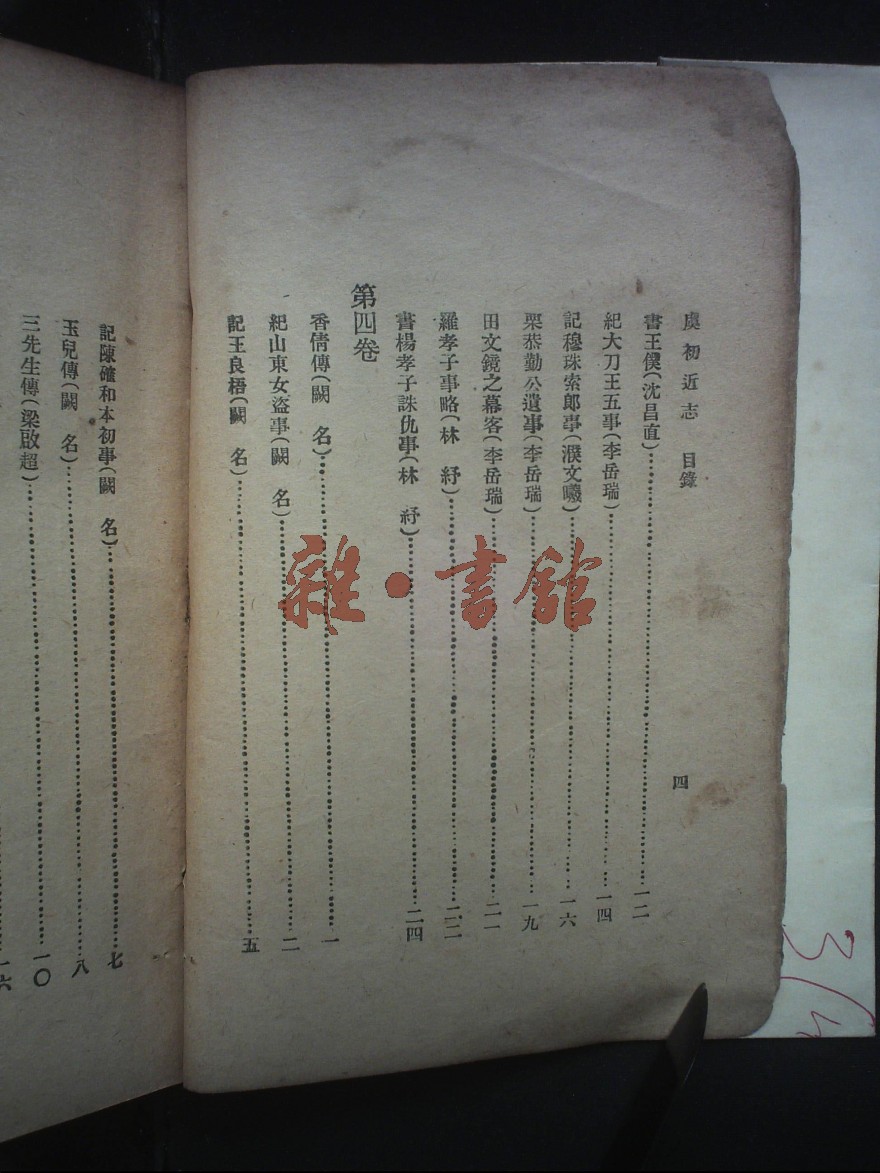 虞初近志　目錄
四
書王僕(沈昌直)……一二
紀大刀王五事(李岳瑞)……一四
記穆珠索郎事(濮文曦)……一六
栗恭勤公遺事(李岳瑞)……一九
田文鏡之幕客(李岳瑞)……二一
羅孝子事略(林　紓)……二二
書楊孝子誅仇事(林　紓)……二四
第四卷
香倩傳(闕　名)……一
紀山東女盜事(闕　名)……二
記王良梧(闕　名)……五
記陳確和本初事(闕　名)……七
玉兒傳(闕　名)……八
三先生傳(梁啟超)……一〇
一六
雜·書館
3/4